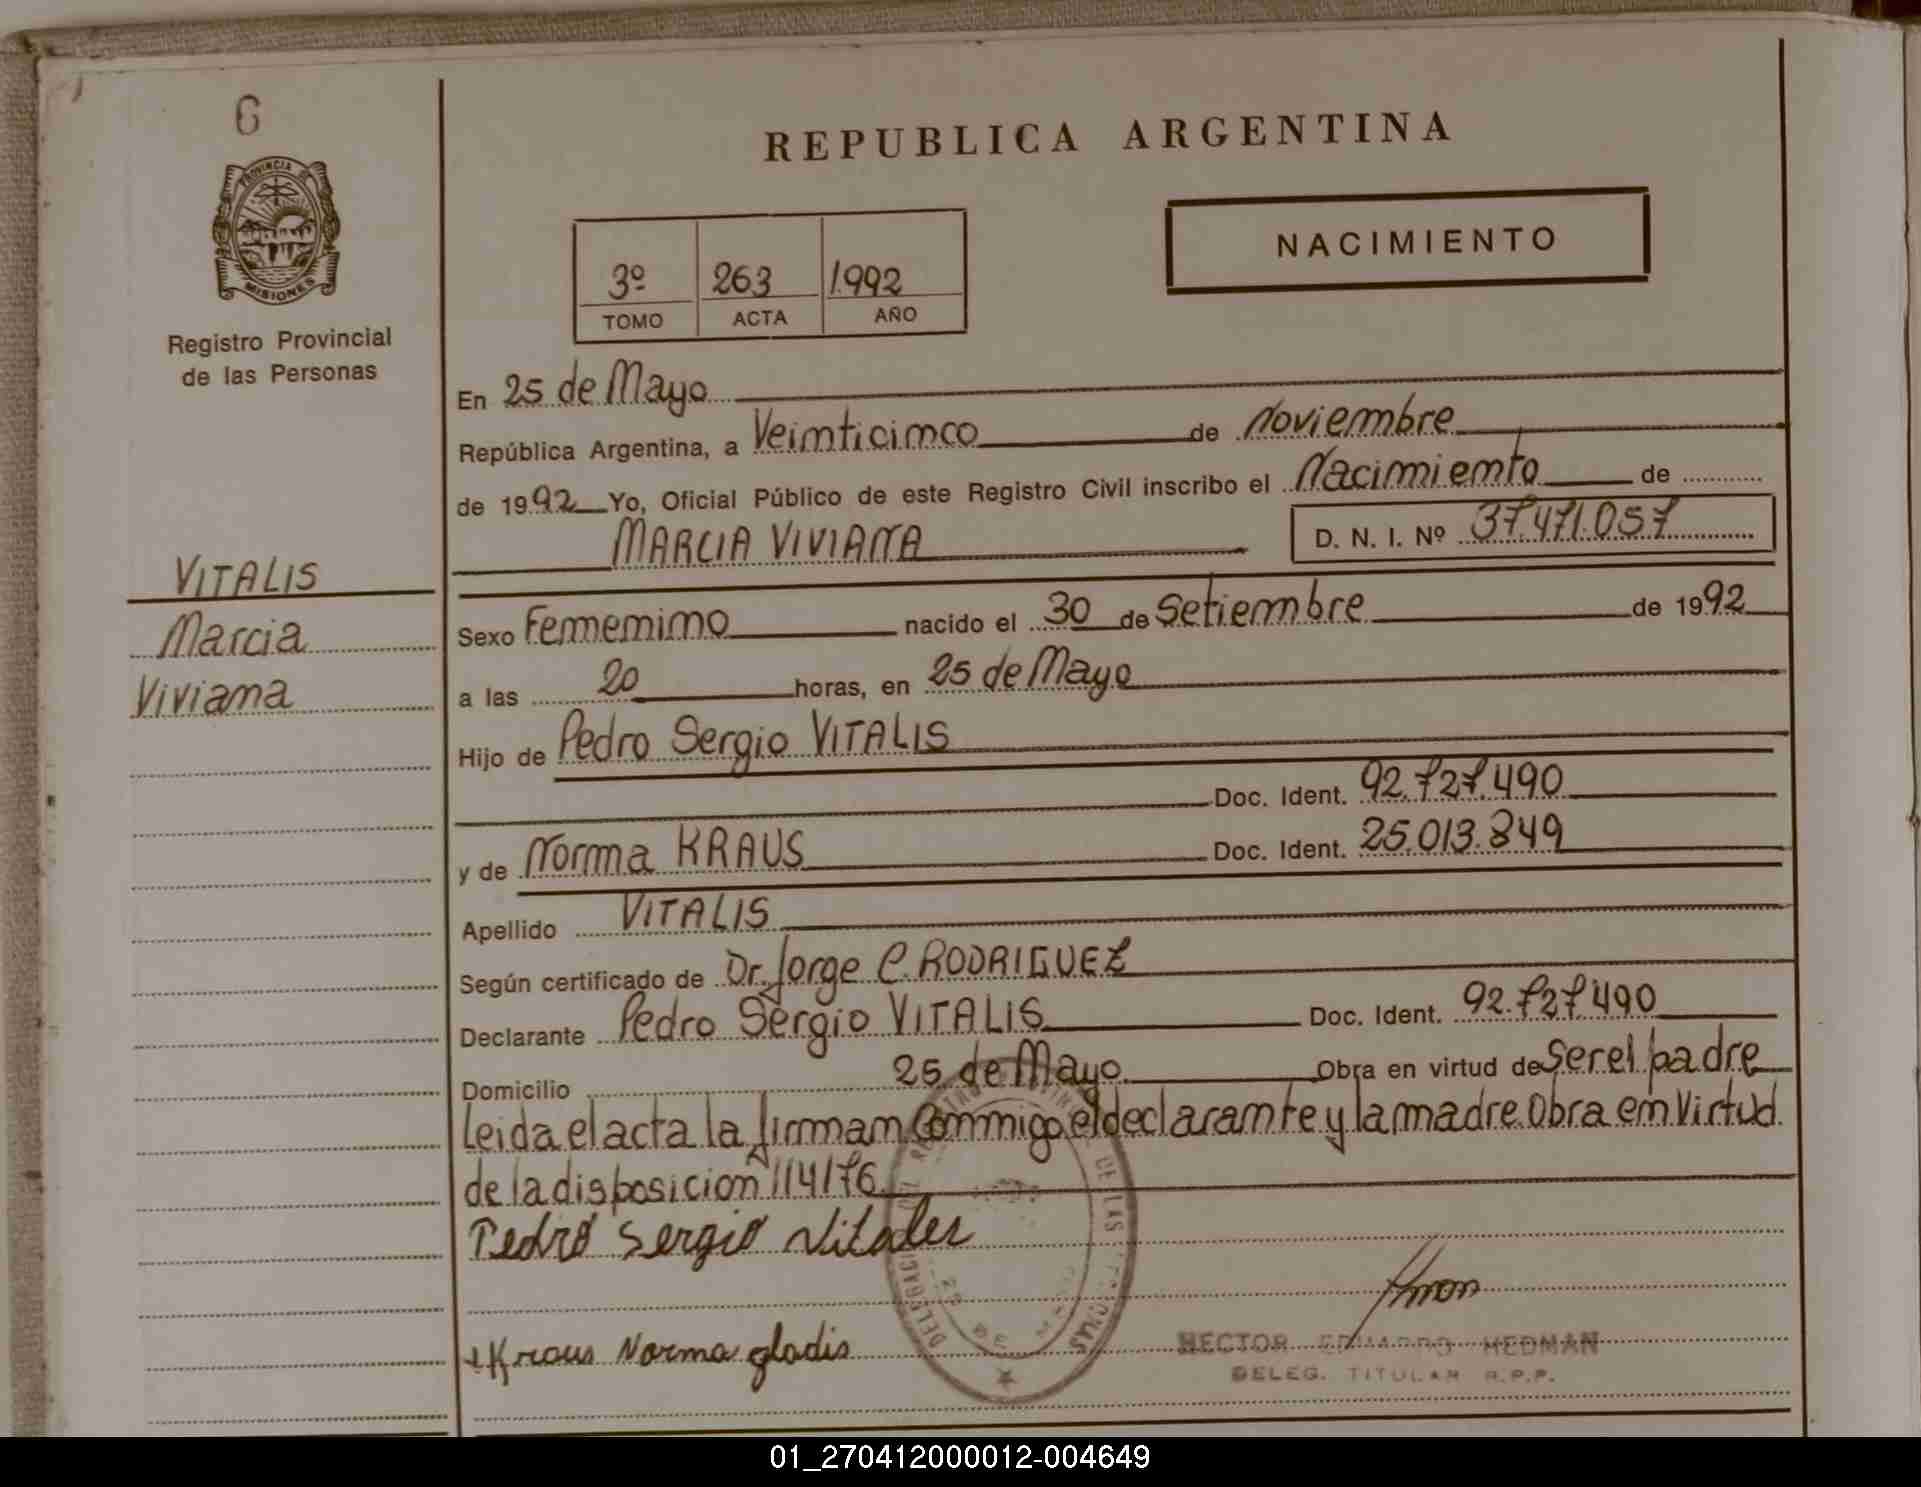 6
PROVINCIA DE
MISIONES
Registro Provincial
de las Personas
VITALIS
Marcia
Viviana
REPUBLICA ARGENTINA
3º 263 1.992
TOMO ACTA AÑO
NACIMIENTO
En 25 de Mayo
República Argentina, a Veinticinco de Noviembre
de 1992 Yo, Oficial Público de este Registro Civil inscribo el Nacimiento de
MARCIA VIVIANA D. N. I. Nº 37.471.057
Sexo Femenino nacido el 30 de Setiembre de 1992
a las 20 horas, en 25 de Mayo
Hijo de Pedro Sergio VITALIS
Doc. Ident. 92.727.490
y de Norma KRAUS Doc. Ident. 25.013.849
Apellido VITALIS
Según certificado de Dr. Jorge C. RODRIGUEZ
Declarante Pedro Sergio VITALIS Doc. Ident. 92.727.490
Domicilio 25 de Mayo Obra en virtud de Ser el padre
Leida el acta la firman Conmigo el declarante y la madre. Obra en Virtud
de la disposicion 114/76
Pedro Sergio
Kraus Norma gladis
HECTOR EDUARDO HEDMAN
DELEG. TITULAR R.P.P.
01_270412000012-004649